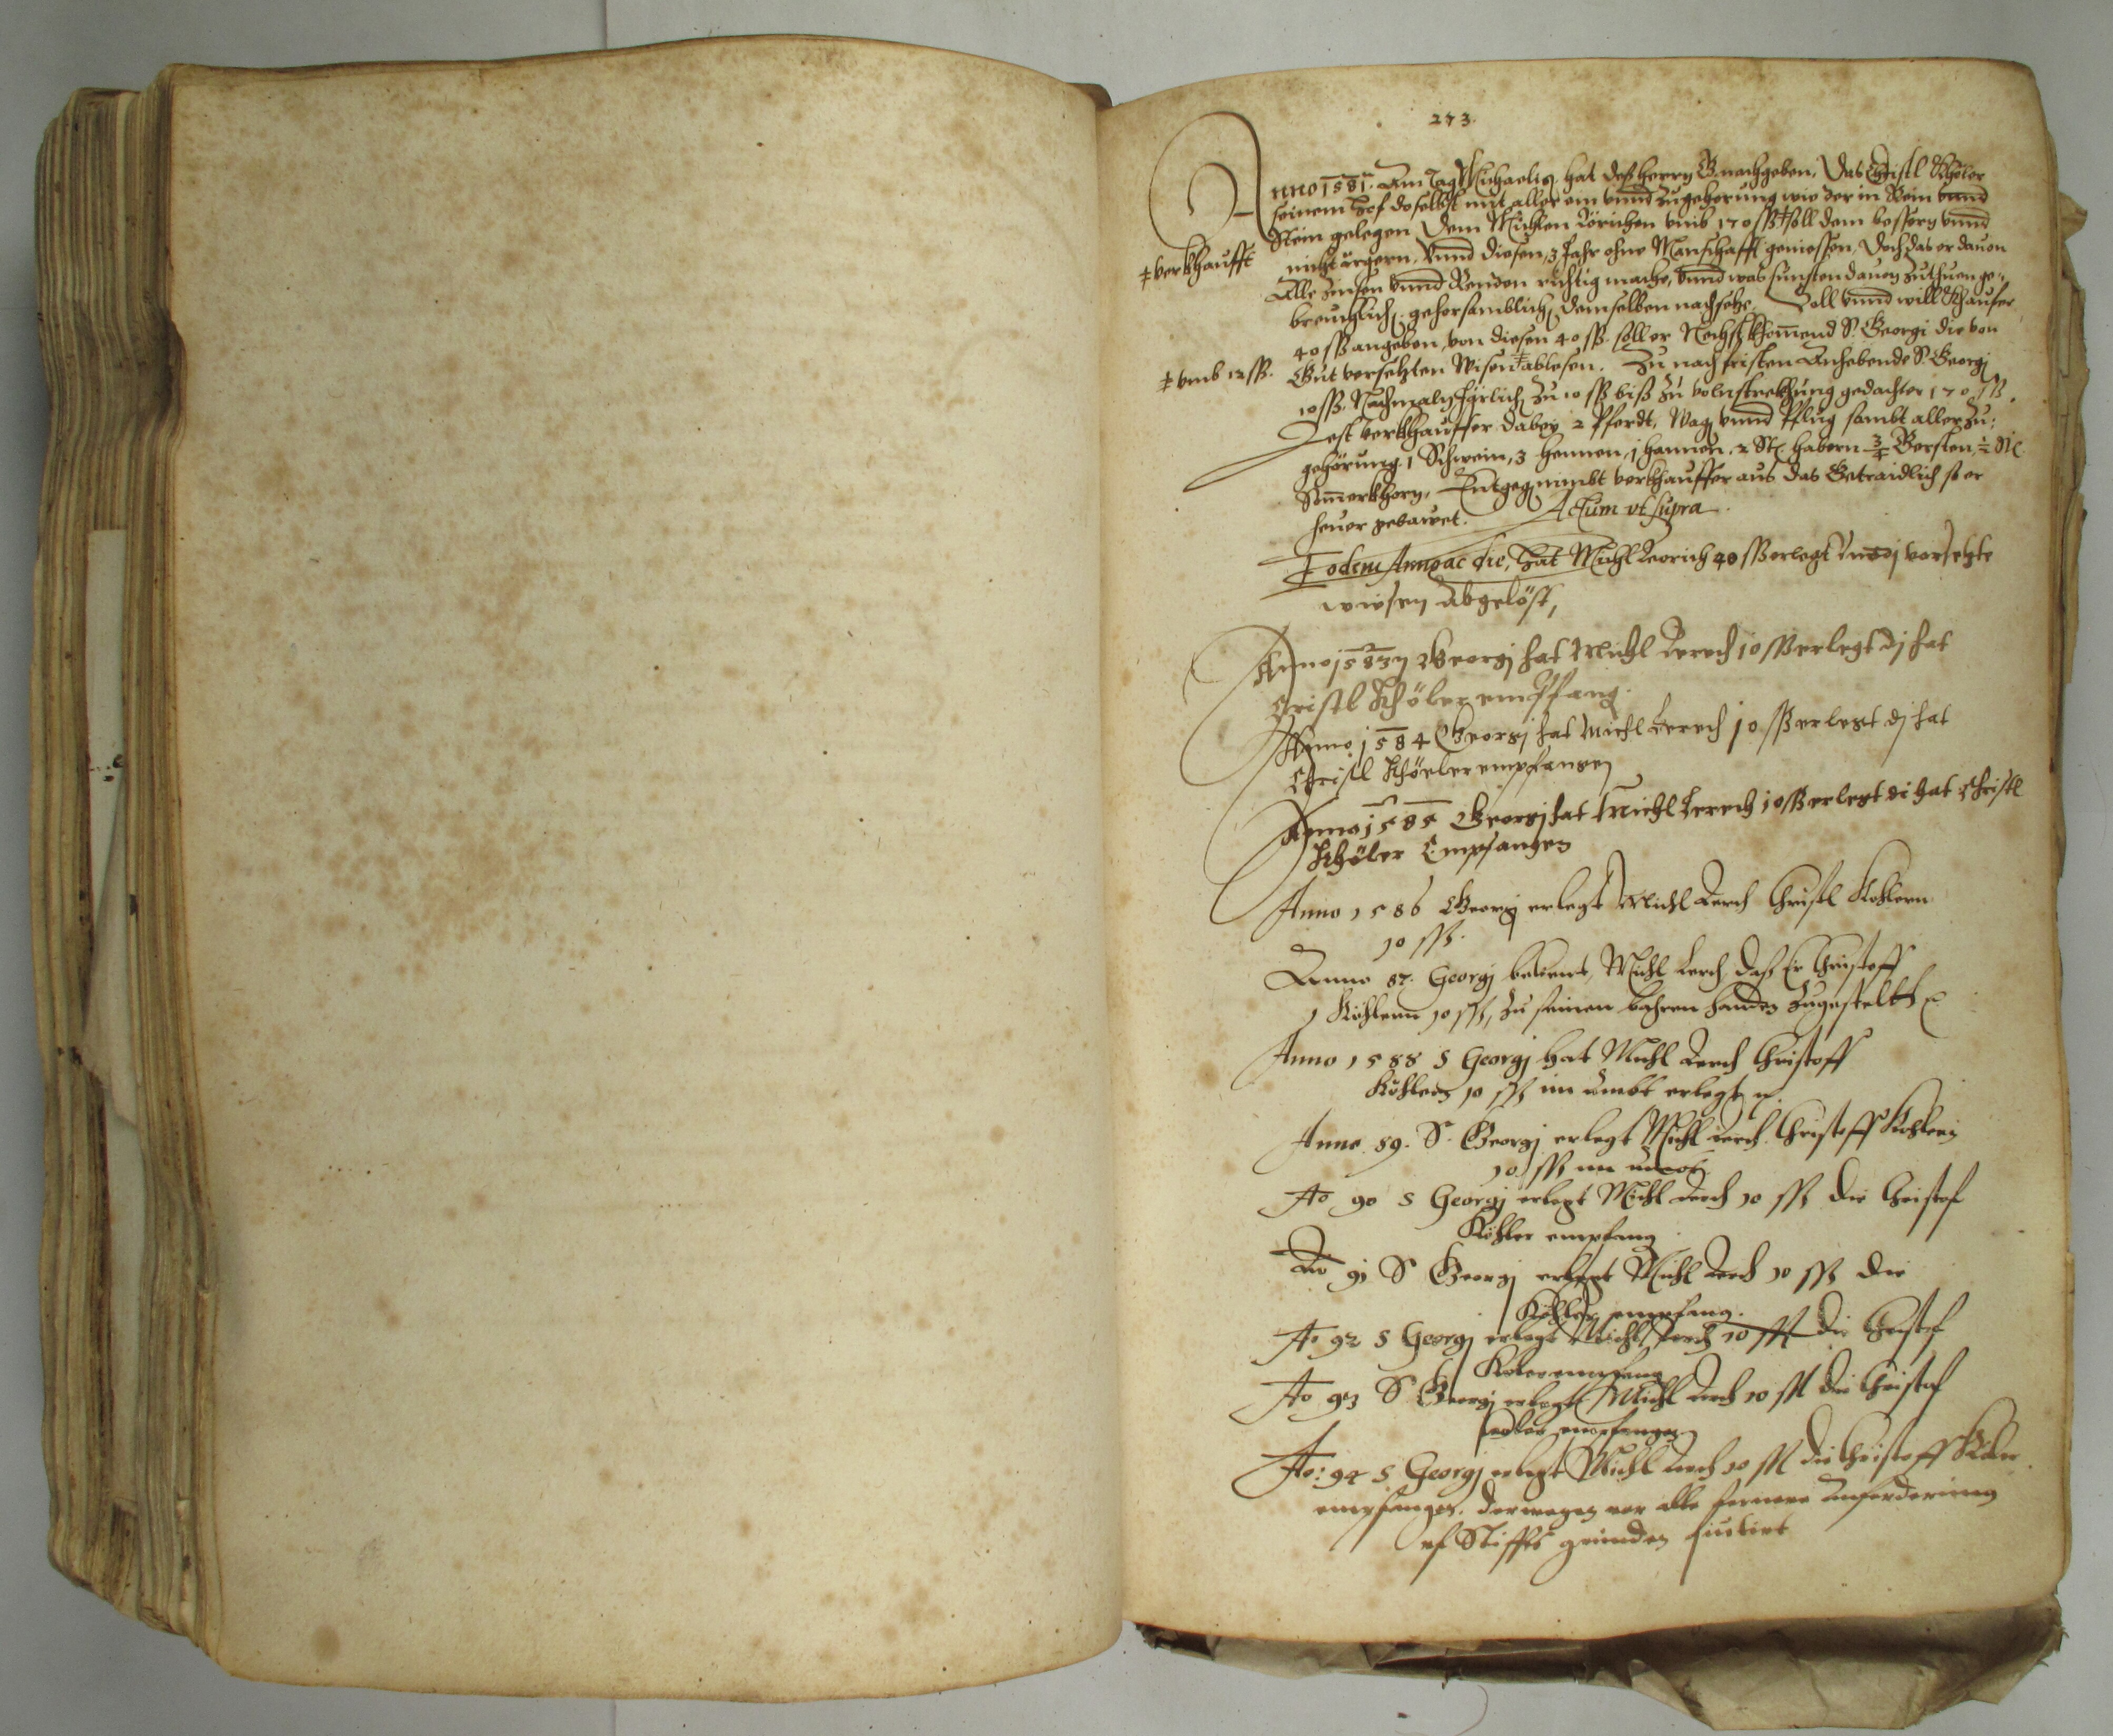 273.
Anno 1581. Am Tag Michaelis hat deß herrn G. nachgeben, Das Christl Khöler
seinem Hof doselbst mit aller ein vnnd Zugehörung wie der in Rein vnnd
Stein gelegen Dem Michlen Lörichen vmb 170 ß ‡ soll dem bessern vnnd
‡ verkhaufft
nicht ärgern, Vnnd diesen 3 Jahr ohne Manschafft geniessen, Doch das er dauon
Alle Zinsen vnnd Renden richtig mache, vnnd was sunsten dauon zuthuen ge-
breuchlich, gehorsamblich demselben nachsetze. Soll vnnd will Khaufer
40 ß angeben, von diesen 40 ß. soll er Nechstkhomend S. Georgi die von
‡ vmb 12 ß.
Gut versetzten Wisen ‡ ablesen. Zu nach fristen Anhebende S. Georgj
10 ß. Nachmals Järlich zu 10 ß biß zu volnstreckhung gedachter 170 ß.
Lest verkhauffer dabey 2 Pferdt, Wag vnnd Pflug sambt aller Zu-
gehörung 1 Schwein, 3 hennen, 1 hannen, 2 St. habern ¾ Gersten, ½
Somerkhorn, Entgeg nimbt verkhauffer aus das Getraidlich so er
heuer gebawet. Actum vt supra.
Eodem Anno ac die, hat Michl Leorich 40 ß erlegt vnd versetzte
wiesen Abgelöst,
Anno 1583 Georgj hat Michl Lerch 10 ß erlegt dj hat
Cristl Khöler empfang.
Anno 1584 Georgj hat Michl Lerch 10 ß erlegt dj hat
Christl Khöeler empfangen
Anno 1585 Georgj hat Michl Lerch 10 ß erlegt di hat Christl
Khöler Empfangen
Anno 1586 Georgj erlegt Michl Lerch Christl Kohlern
10 ß.
Anno 87. Georgj bekent, Michl Lerch daß Er Christoff
Köhlern 10 ß, zu seinen handen zugestelt
Anno 1588 S Georgj hat Michl Lerch Christoff
Köhlern 10 ß im Ambt erlegt.
Anno 89. S. Georgj erlegt Michl Lerch Christoff Kohlern
10 ß im
Ao 90 S Georgj erlegt Michl Lerch 10 ß die Christof
Köhler empfang
Ao 91 S Georgj erlegt Michl Lerch 10 ß die
Köhler empfang.
Ao 92 S Georgj erlegt Michl Lerch 10 ß die Christof
Koler empfang
Ao 93 S Georgj erlegt Michl Lerch 10 ß die Christof
Koler empfangen
Ao: 94 S Georgj erlegt Michl Lerch 10 ß die Christoff Koler
empfangen. derwegen vor alle fernere Anforderung
vf Stiffts grunden quitirt